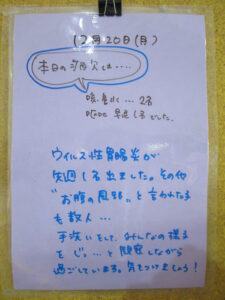 12月20日(月)
本日の病欠は....
咳・鼻水... 2名
嘔吐 早退1名 でした。
ウイルス性胃腸炎が
先週1名出ました。その他
"お腹の風邪"と言われた子
も数人...
手洗いをして、みんなの様子
を じ。...と観察しながら
過ごしています。気をつけましょう!